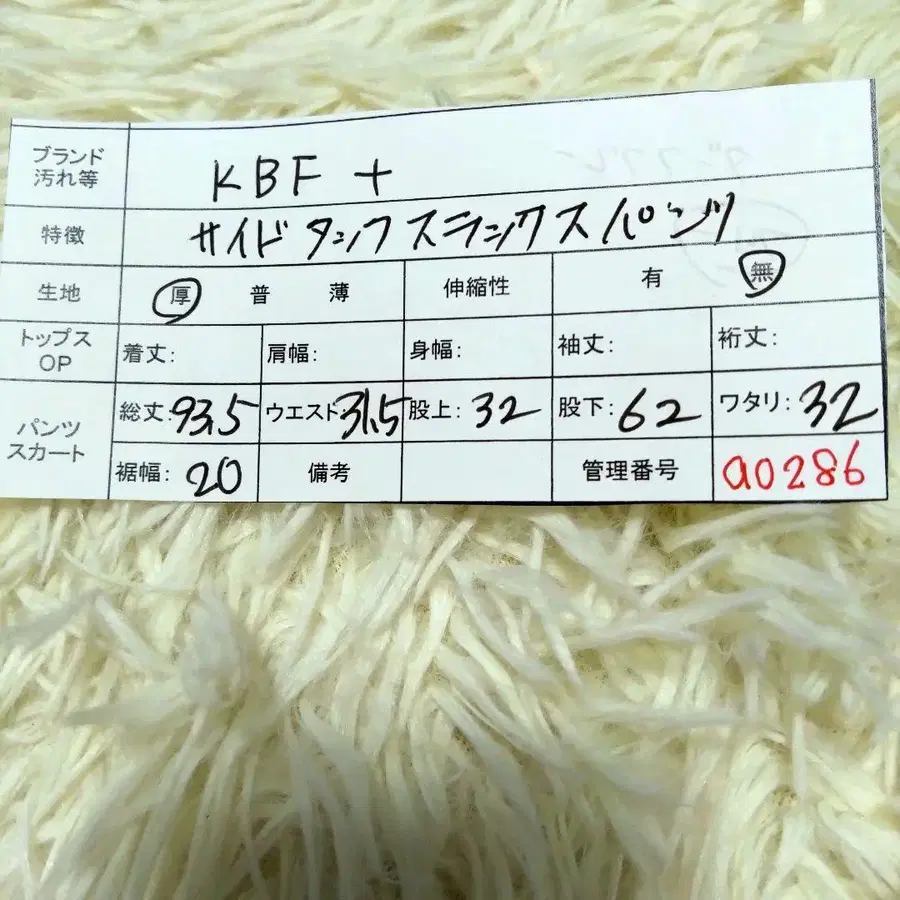 ブランド
汚れ等 KBF +
特徴 サイドタックスラックスパンツ
生地 厚 普 薄 伸縮性 有 無
トップス
OP 着丈: 肩幅: 身幅: 袖丈: 裄丈:
パンツ
スカート 総丈: 93.5 ウエスト: 31.5 股上: 32 股下: 62 ワタリ: 32
裾幅: 20 備考 管理番号 a0286